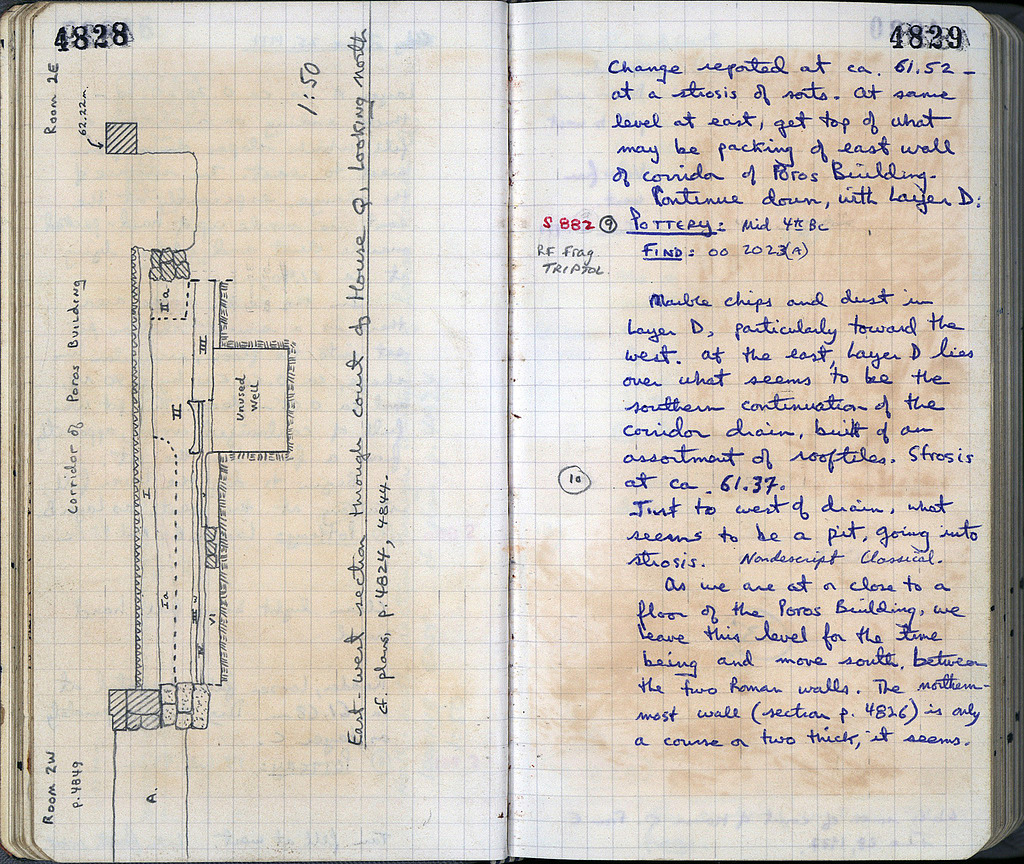 4828
Room 2E
62.22m.
Corridor of Poros Building
1:50
II a
III
II
I
Unused
Well
Ia
V
VI
IV
Room 2W
p.4849
A.
East-west section through court of House Q, looking north
cf. plans, p. 4824, 4844.
4829
Change reported at ca. 61.52 –
at a strosis of sorts. At same
level at east, get top of what
may be packing of east wall
of corridor of Poros Building.
Continue down, with Layer D:
S 882 9 POTTERY: Mid 4th BC
RF Frag FIND: 00 2023(A)
TRIPTOL.
Marble chips and dust in
Layer D, particularly toward the
west. At the east, Layer D lies
over what seems to be the
southern continuation of the
corridor drain, built of an
assortment of rooftiles. Strosis
10 at ca. 61.37.
Just to west of drain, what
seems to be a pit, going into
strosis. Nondescript Classical.
As we are at or close to a
floor of the Poros Building, we
leave this level for the time
being and move south, between
the two Roman walls. The northern-
most wall (section p. 4826) is only
a course or two thick, it seems.